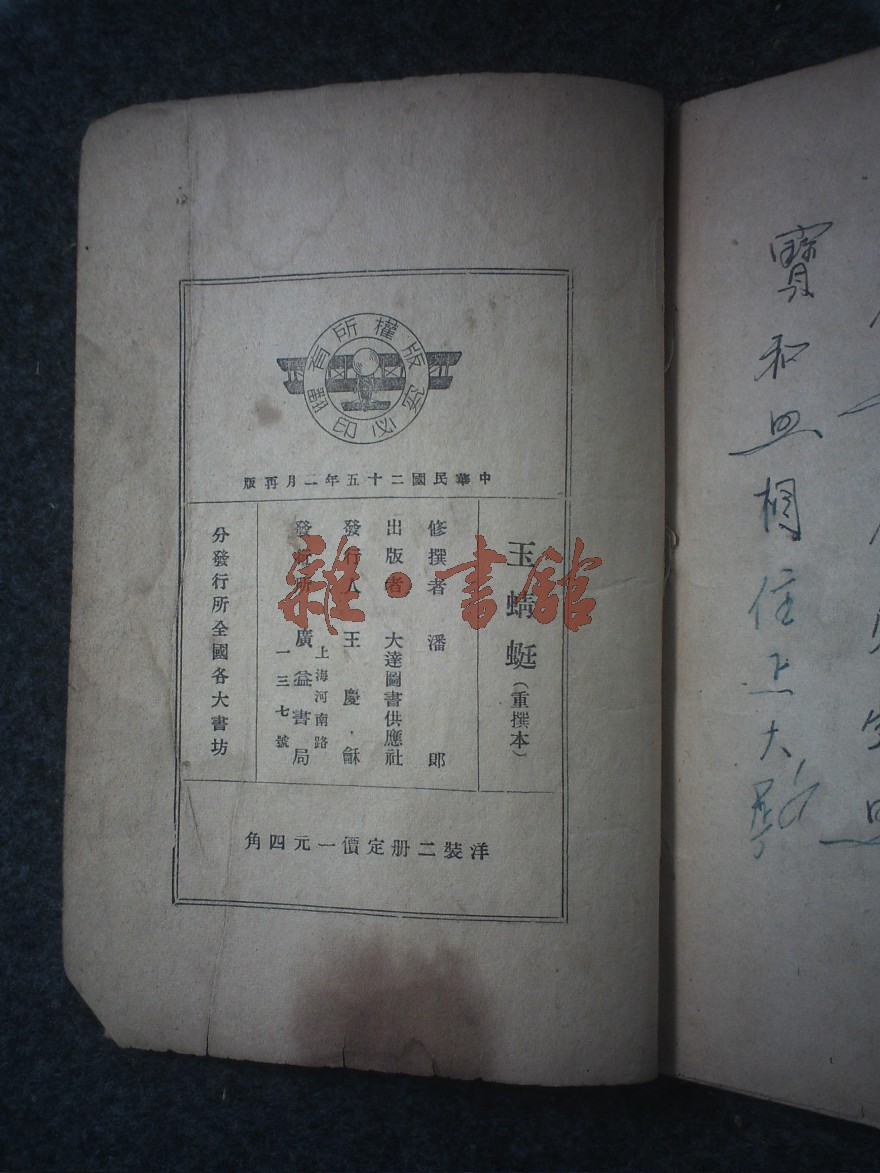 版權所有
翻印必究
中華民國二十五年二月再版
玉蜻蜓（重撰本）
修撰者 潘郎
出版者 大達圖書供應社
發行人 王慶龢
發行所 廣益書局
上海河南路
一三七號
分發行所全國各大書坊
洋裝二册定價一元四角
雜·書館
寶和照相住上大